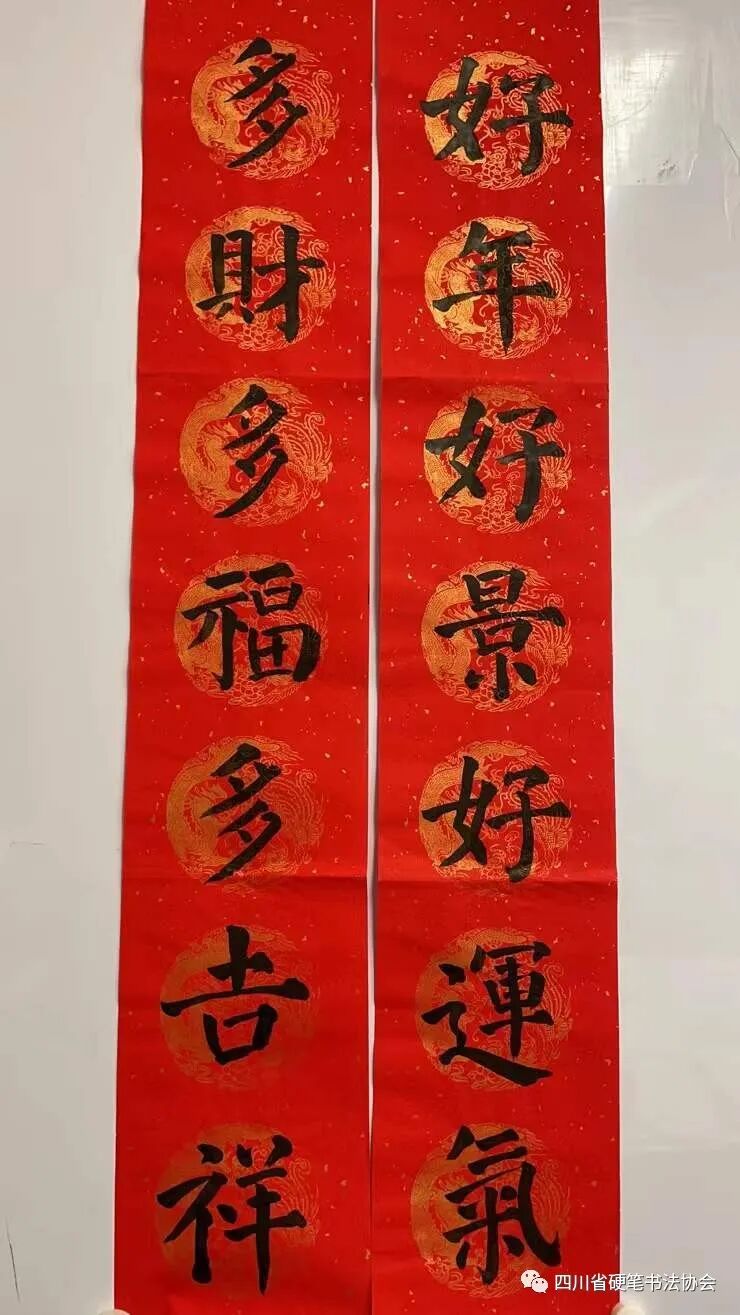 好年好景好運氣
多財多福多吉祥
四川省硬笔书法协会